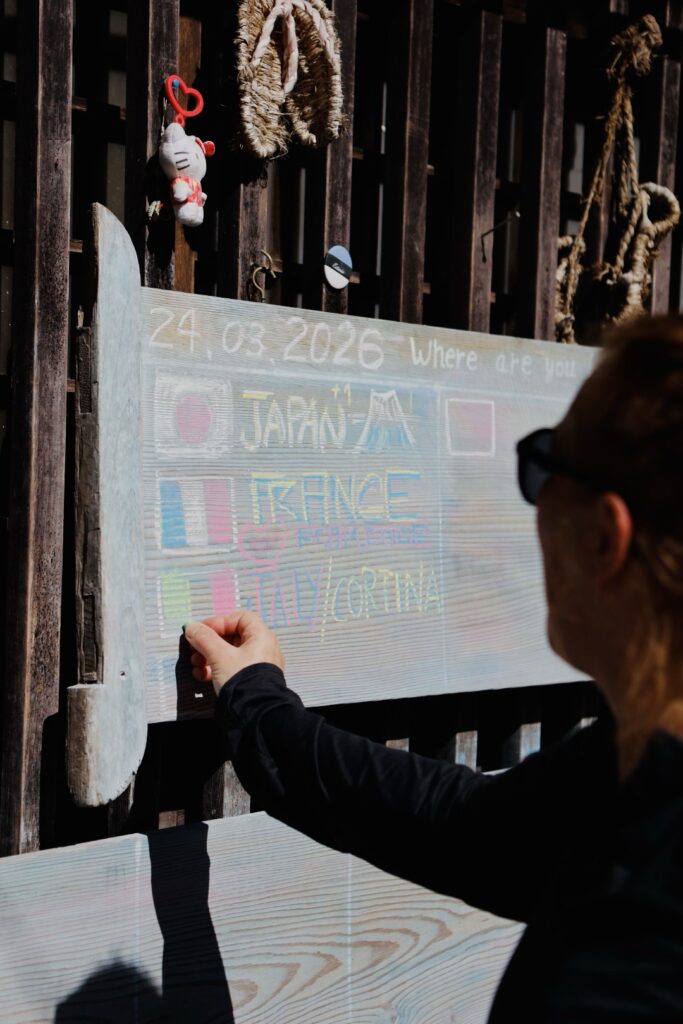 24.03.2026 Where are you
JAPAN +1
FRANCE
ITALY/CORTINA